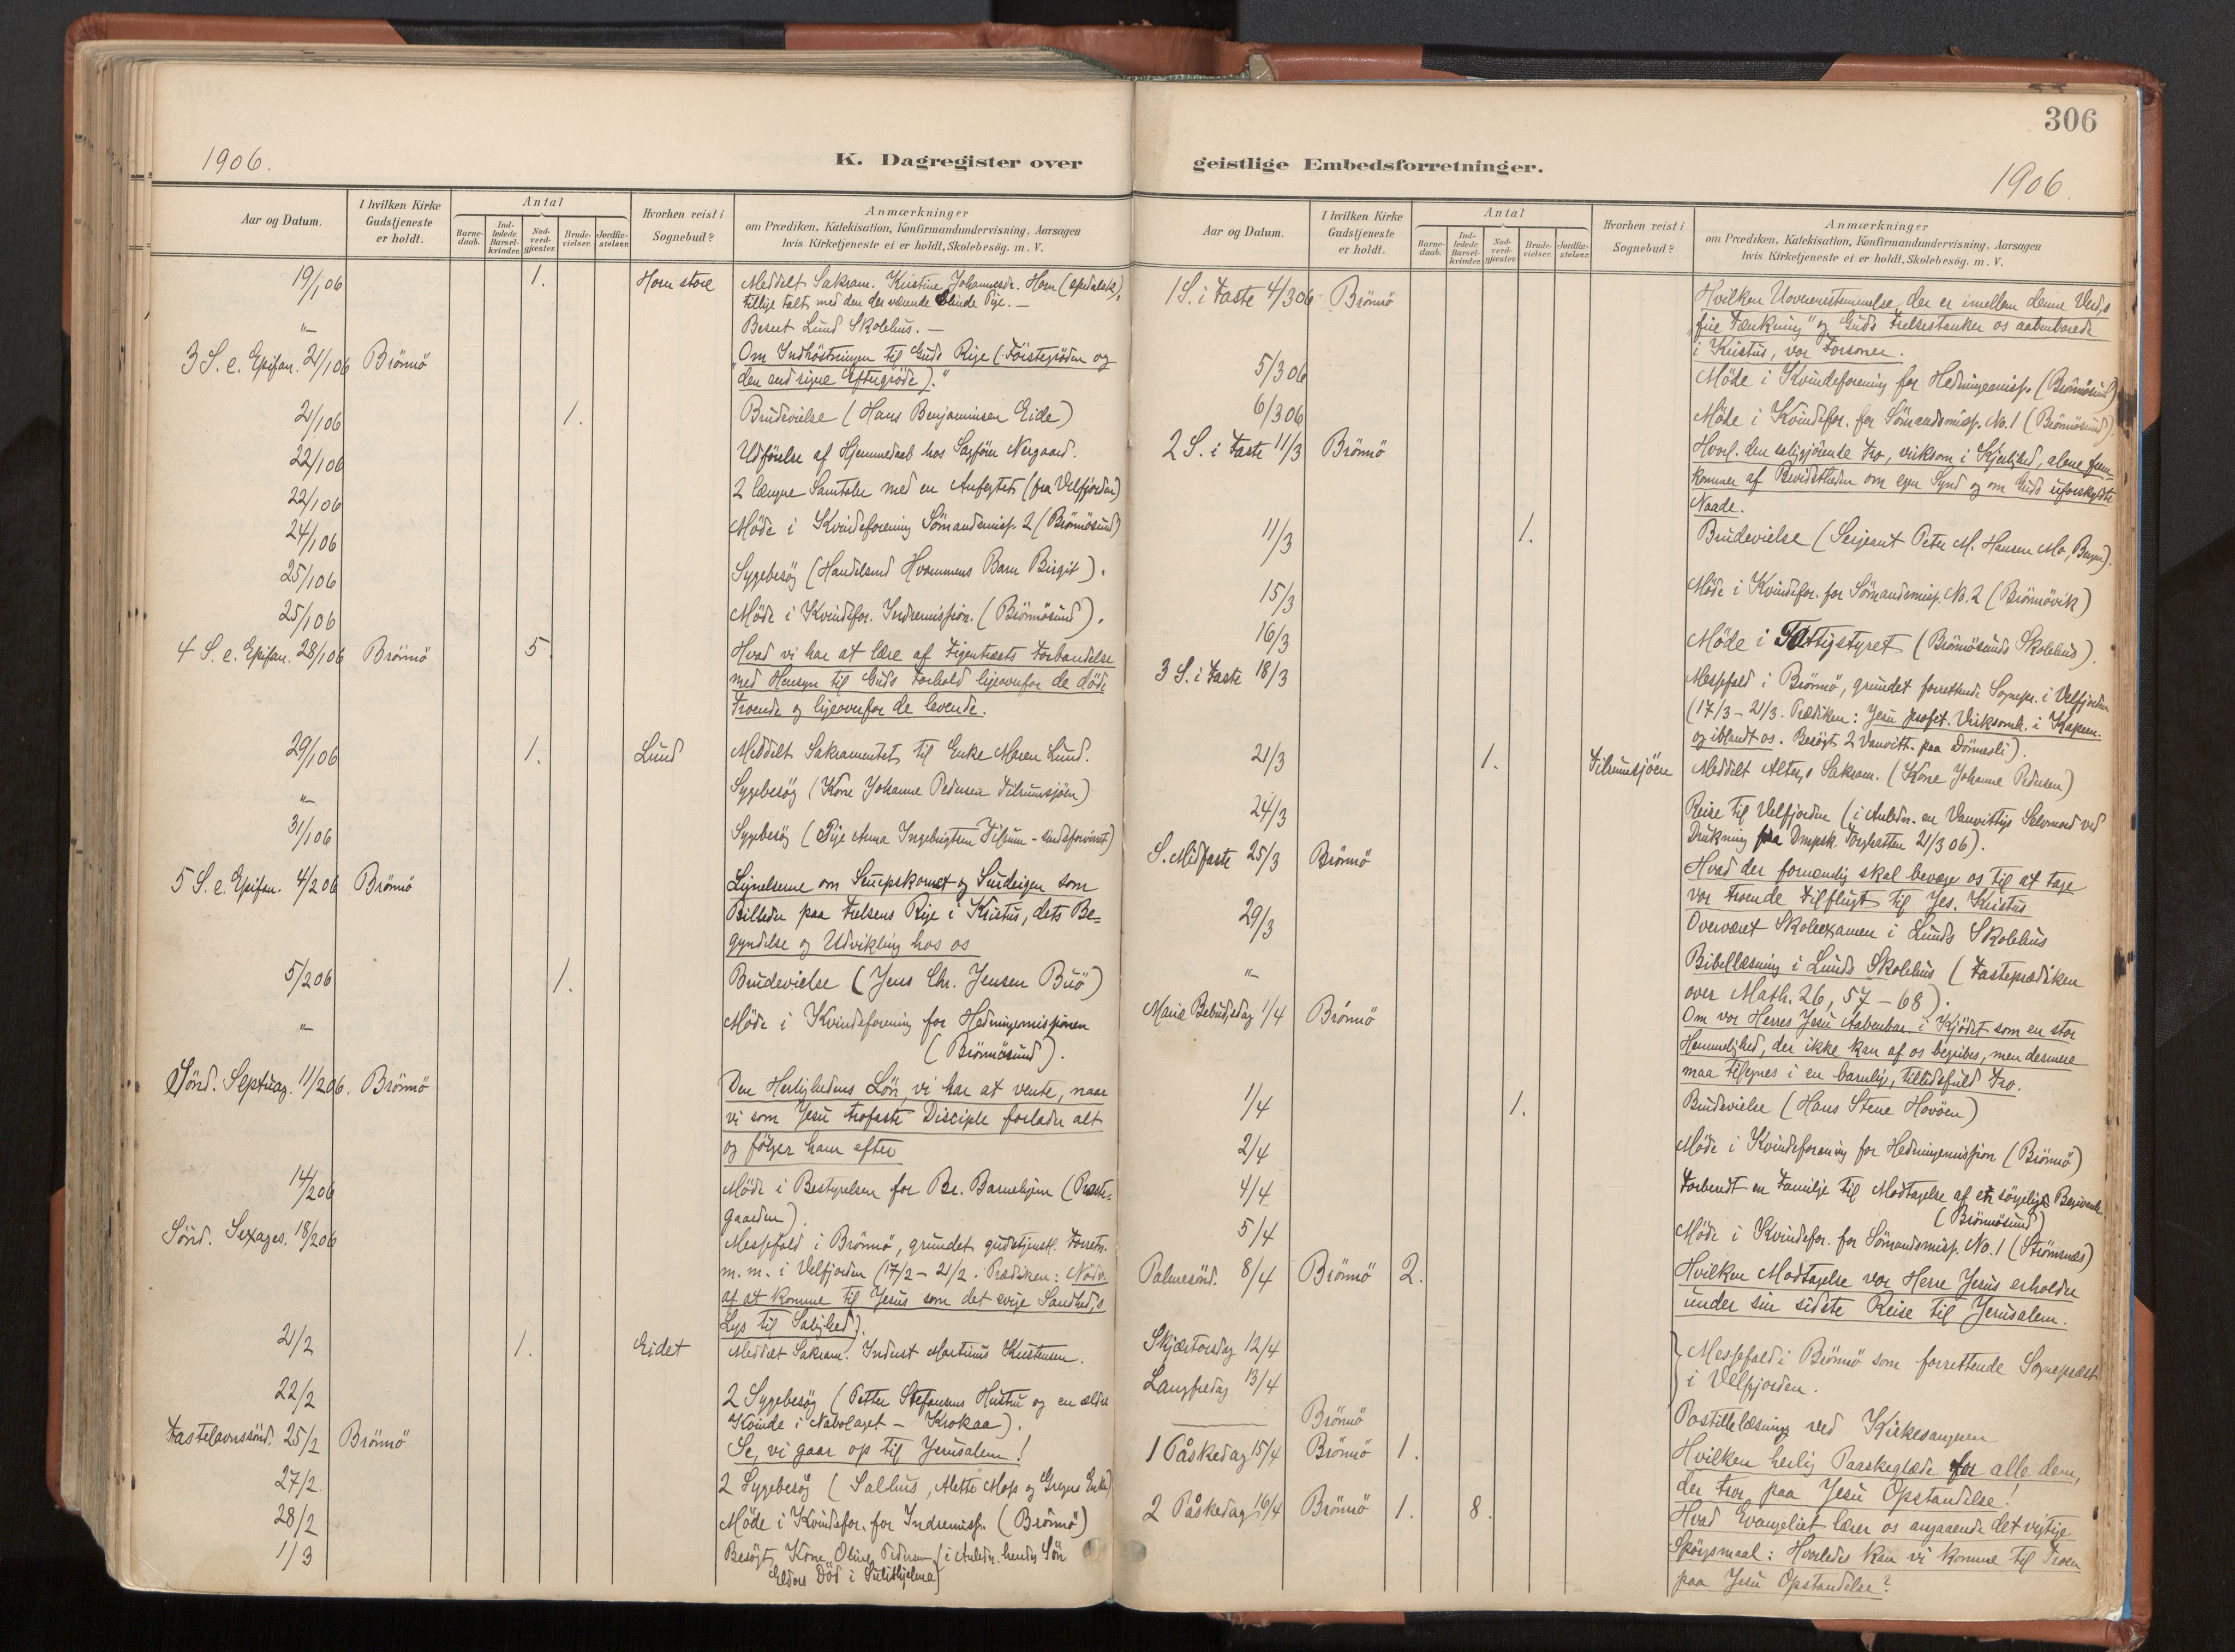 306
1906.
K. Dagregister over
geistlige Embedsforretninger.
1906
Aar og Datum.
I hvilken Kirke Gudstjeneste er holdt.
Antal
Barne-daab.
Ind-ledede Barsel-kvinder.
Nad-verd-gjæster.
Brude-vielser.
Jordfæ-stelser.
Hvorhen reist i Sognebud?
Anmærkninger
om Prædiken, Katekisation, Konfirmandundervisning, Aarsagen
hvis Kirketjeneste ei er holdt, Skolebesøg. m. V.
19/1 06 1. Horn store Meddelt Sakram. Kristine Johannesdr. Horn (spedalsk),
tillige talt med den der værende blinde Pige. —
" Besøgt Lund Skolehus. —
3 S. e. Epifan. 21/1 06 Brönnö Om Indhöstningen til Guds Rige (Förstegröden og
"den end rigere Eftergröde)."
21/1 06 1. Brudevielse (Hans Benjaminsen Eide)
22/1 06 Udförelse af Hjemmedaab hos Sagförer Nergaard.
22/1 06 2 længere Samtaler med en Anfegtet (fra Velfjorden)
24/1 06 Möde i Kvindeforening Sömandsmiss. 2 (Brönnösund)
25/1 06 Sygebesög (Handelsmd Hvammens Barn Birgit).
25/1 06 Möde i Kvindefor. Indremission. (Brönnösund).
4 S. e. Epifan. 28/1 06 Brönnö 5. Hvad vi har at lære af Figentræets Forbandelse
med Hensyn til Guds Forhold ligeoverfor de döde
Troende og ligeoverfor de levende.
29/1 06 1. Lund Meddelt Sakramentet til Enke Maren Lund.
" Sygebesög (Kone Johanne Pedersen Tilrumsjöen)
31/1 06 Sygebesög (Pige Anna Ingebrigtsen Tilrum - sindsforvirret)
5 S. e. Epifan. 4/2 06 Brönnö Lignelserne om Senepskornet og Surdeigen som
Billeder paa Frelsens Rige i Kristus, dets Be-
gyndelse og Udvikling hos os
5/2 06 1. Brudevielse (Jens Chr. Jensen Buö)
" Möde i Kvindeforening for Hedningemissionen
(Brönnösund).
Sönd. Septuag. 11/2 06. Brönnö Den Herlighedens Lön, vi har at vente, naar
vi som Jesu trofaste Disciple forlader alt
og fölger ham efter
14/2 06 Möde i Bestyrelsen for Br. Barnehjem (Præste-
gaarden).
Sönd. Sexages. 18/2 06 Messefald i Brönnö, grundet gudstjenstl. Forretn.
m. m. i Velfjorden (17/2 - 21/2. Prædiken: Nödv.
af at komme til Jesus som det evige Sandhed's
Lys til Salighed).
21/2 1. Eidet Meddelt Sakram. Inderst Martinus Kristensen.
22/2 2 Sygebesög (Petter Stefansens Hustru og en ældre
Kvinde i Nabolaget - Krokaa).
Fastelavnssönd. 25/2 Brönnö Se, vi gaar op til Jerusalem!
27/2 2 Sygebesög (Salhus, Alette Moss og Gregus Enke)
28/2 Möde i Kvindefor. for Indremiss. (Brönnö)
1/3 Besögt Kone Oline Pedersen (i Anledn. hendes Sön
Eldors Död i Sulithjelma)
Aar og Datum.
I hvilken Kirke Gudstjeneste er holdt.
Antal
Barne-daab.
Ind-ledede Barsel-kvinder.
Nad-verd-gjæster.
Brude-vielser.
Jordfæ-stelser.
Hvorhen reist i Sognebud?
Anmærkninger
om Prædiken, Katekisation, Konfirmandundervisning, Aarsagen
hvis Kirketjeneste ei er holdt, Skolebesøg. m. V.
1 S. i Faste 4/3 06 Brönnö Hvilken Uoverensstemmelse, der er imellem denne Verd's
"frie Tænkning" og Guds Frelsestanker os aabenbarede
i Kristus, vor Forsoner.
5/3 06 Möde i Kvindeforening for Hedningemiss. (Brönnösund)
6/3 06 Möde i Kvindefor. for Sömandsmiss. No. 1 (Brönnösund)
2 S. i Faste 11/3 Brönnö Hvorl. den saliggjörende Tro, virksom i Kjærlighed, alene frem-
kommer af Bevidstheden om egen Synd og om Guds uforskyldte
Naade.
11/3 1. Brudevielse (Serjeant Peter M. Hansen Mo, Bergen).
15/3 Möde i Kvindefor. for Sömandsmiss. No. 2 (Brönnövik)
16/3 Möde i Fattigstyret (Brönnösunds Skolehus).
3 S. i Faste 18/3 Messefald i Brönnö, grundet forrettende Sognepr. i Velfjorden
(17/3 - 21/3. Prædiken: Jesu profet. Virksomh. i Kapern.
og iblandt os. Besögt 2 Vanvitt. paa Dönnesli).
21/3 1. Tilrumsjöen Meddelt Alter's Sakram. (Kone Johanne Pedersen)
24/3 Reise til Velfjorden (i Anledn. en Vanvittigs Selvmord ved
Drukning fra Dmpsk. Torghatten 21/3 06).
S. Midfaste 25/3 Brönnö Hvad der fornemlig skal bevæge os til at tage
vor troende Tilflugt til Jes. Kristus
29/3 Overværet Skoleexamen i Lunds Skolehus
" Bibellæsning i Lunds Skolehus (Fasteprædiken
over Math. 26, 57 - 68).
Mariæ Bebud,sdag 1/4 Brönnö Om vor Herres Jesu Aabenbar. i Kjödet som en stor
Hemmelighed, der ikke kan af os begribes, men dermere
maa tilegnes i en barnlig, tillidsfuld Tro.
1/4 1. Brudevielse (Hans Stene Havöen)
2/4 Möde i Kvindeforening for Hedningemission (Brönnö)
4/4 Forberedt en Familje til Modtagelse af et sörgeligt Begivenh.
(Brönnösund)
5/4 Möde i Kvindefor. for Sömandsmiss. No. 1 (Strömsnes)
Palmesönd. 8/4 Brönnö 2. Hvilken Modtagelse vor Herre Jesus erholder
under sin sidste Reise til Jerusalem.
Skjærtorsdag 12/4 Messefald i Brönnö som forrettende Sognepræst
Langfredag 13/4 i Velfjorden.
Brönnö Postillelæsning ved Kirkesangeren
1 Påskedag 15/4 Brönnö 1. Hvilken herlig Paaskeglæde for alle dem,
der tror paa Jesu Opstandelse!
2 Påskedag 16/4 Brönnö 1. 8. Hvad Evangeliet lærer os angaaende det vigtige
Spörgsmaal: Hvorledes kan vi komme til Troen
paa Jesu Opstandelse?